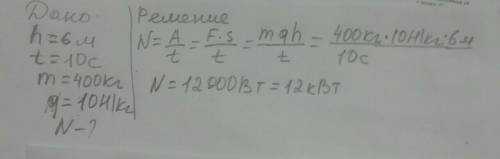 Дано
h=6м
t=10с
m=400кг
g=10Н/кг
N-?
Решение
N=A/t=F·s/t=mgh/t=400кг·10Н/кг·6м/10с
N=12000Вт=12кВт